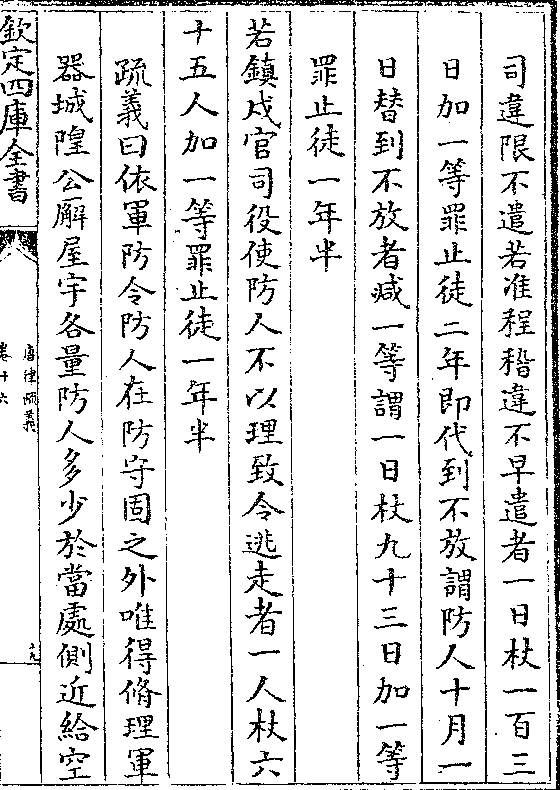 司違限不遣若准程稽違不早遣者一日杖一百三
日加一等罪止徒二年即代到不放謂防人十月一
日替到不放者減一等謂一日杖九十三日加一等
罪止徒一年半
若鎮戍官司役使防人不以理致令逃走者一人杖六
十五人加一等罪止徒一年半
疏義曰依軍防令防人在防守固之外唯得脩理軍
器城隍公廨屋宇各量防人多少於當處側近給空
欽定四庫全書
唐律疏義
卷十六